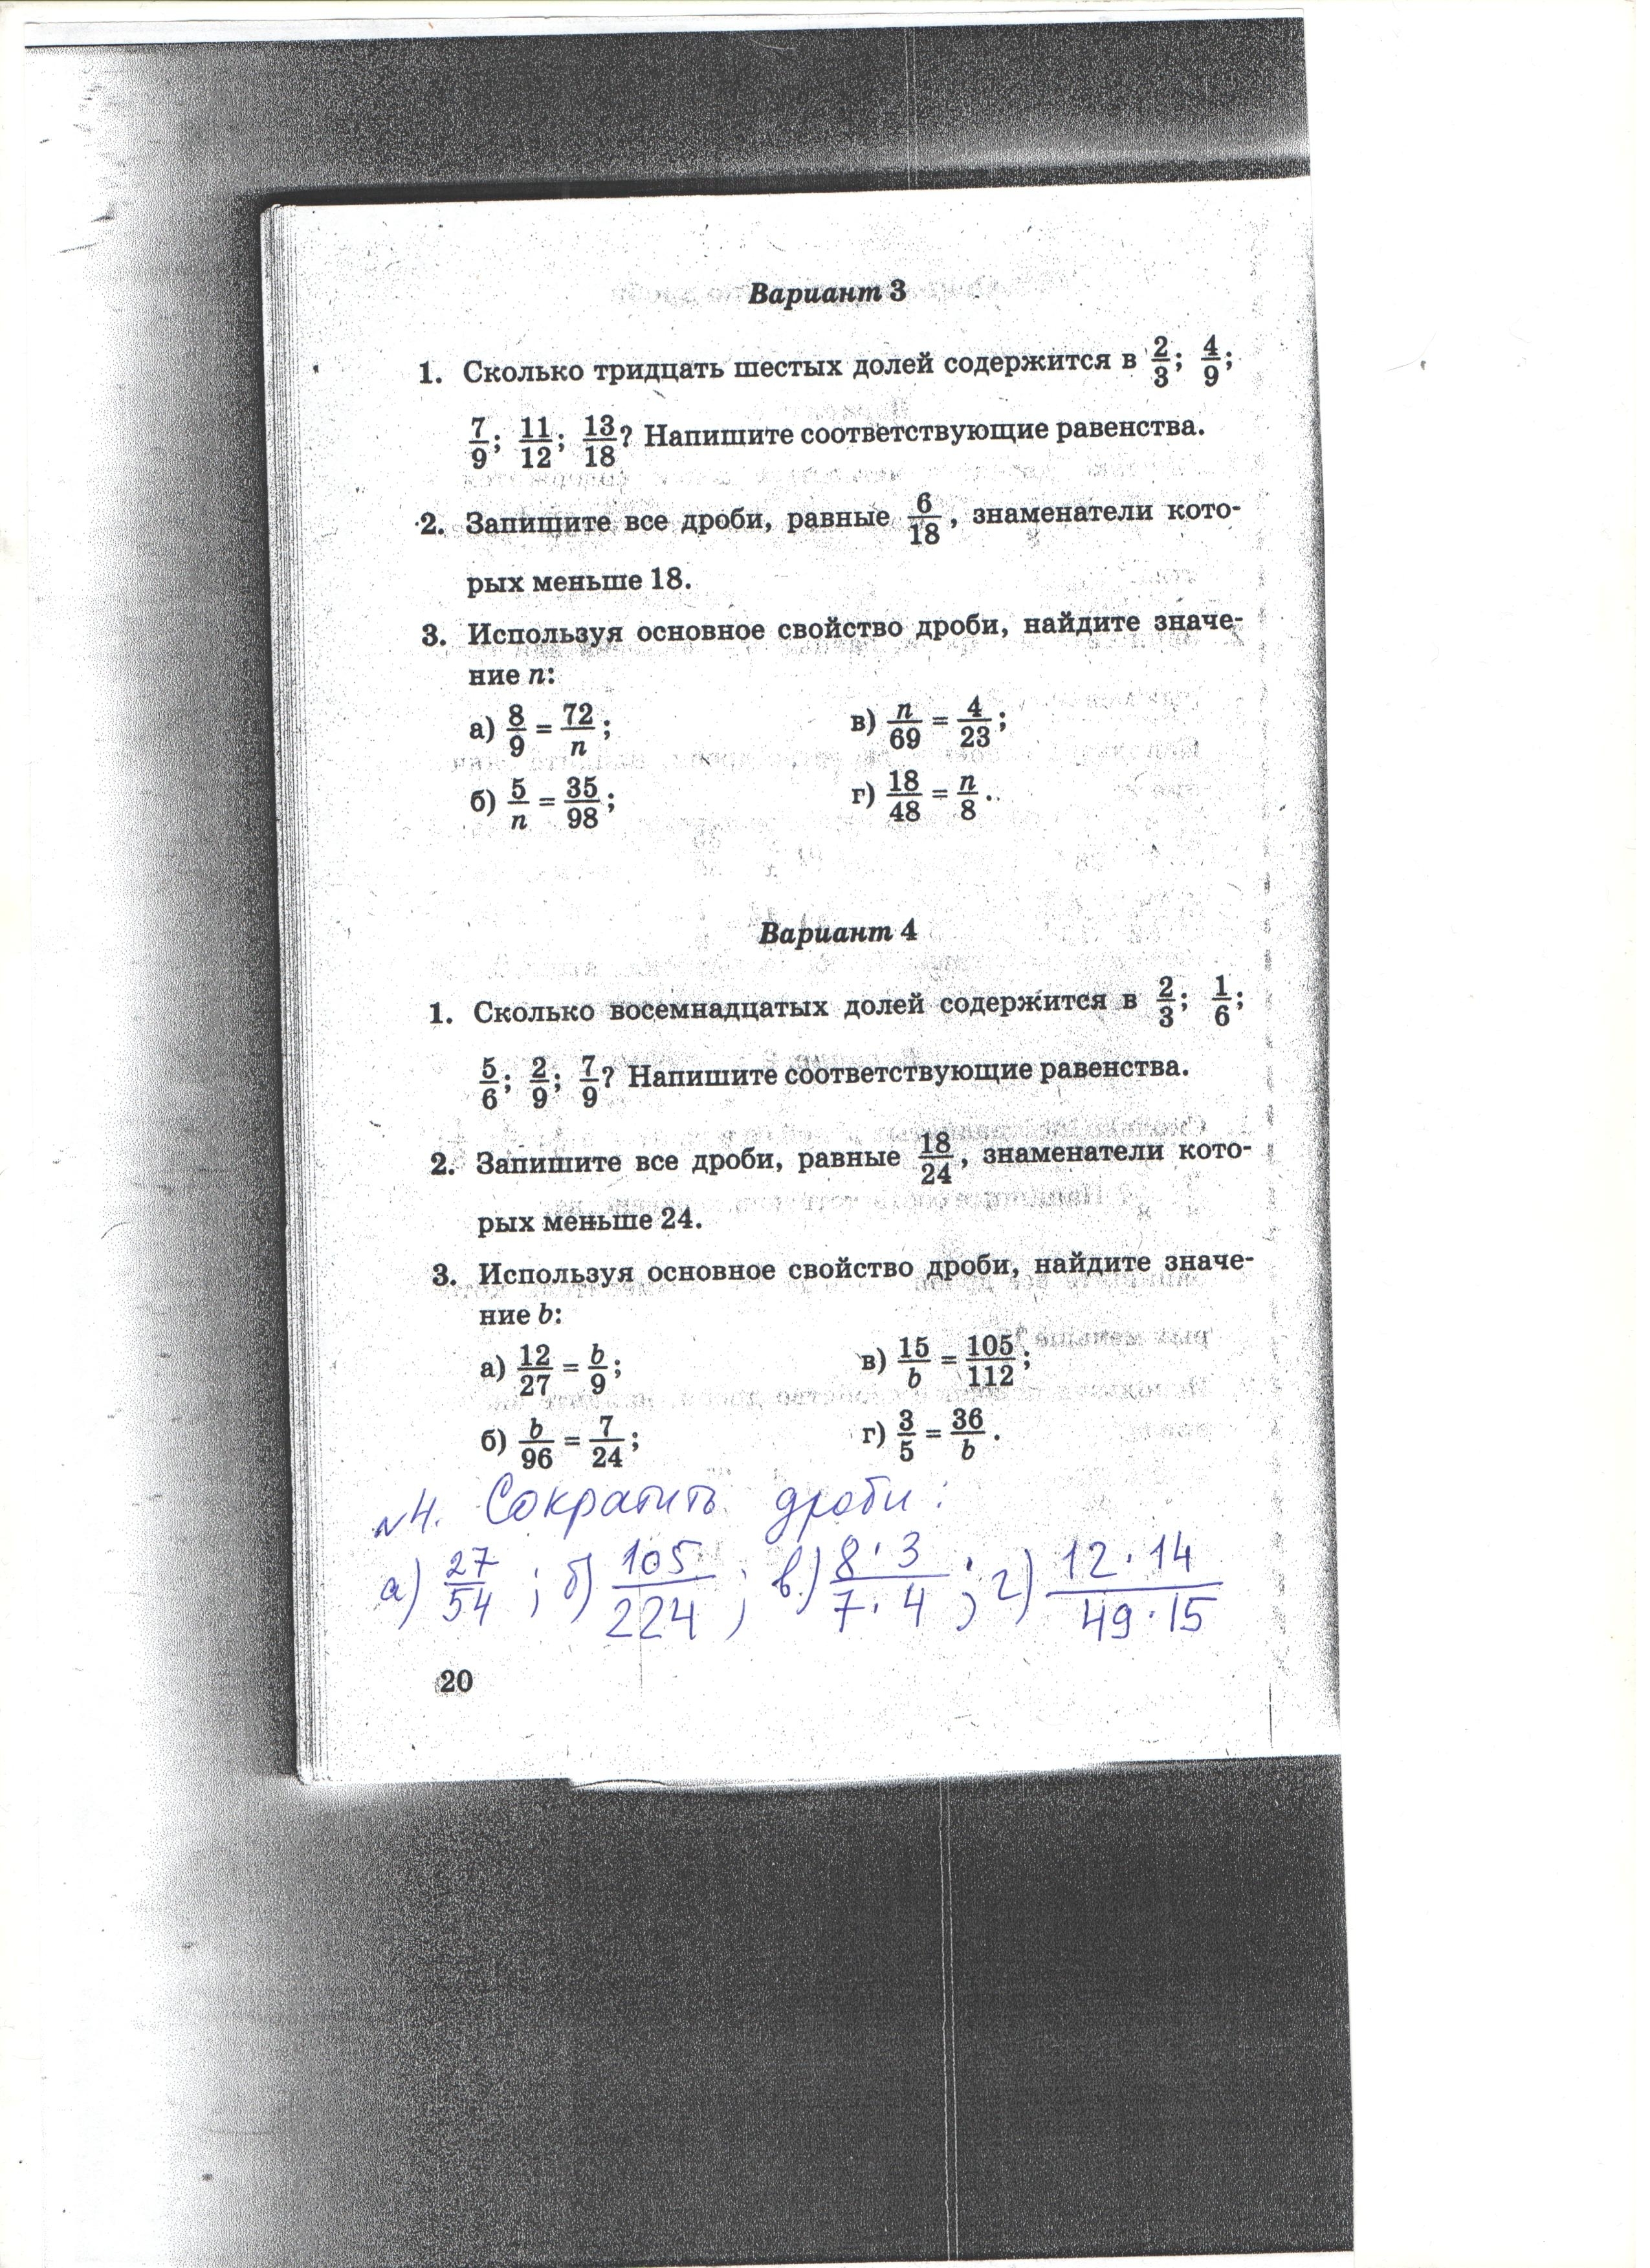 Вариант 3
1. Сколько тридцать шестых долей содержится в 2/3; 4/9;
7/9; 11/12; 13/18? Напишите соответствующие равенства.
2. Запишите все дроби, равные 6/18, знаменатели кото-
рых меньше 18.
3. Используя основное свойство дроби, найдите значе-
ние n:
а) 8/9 = 72/n; в) n/69 = 4/23;
б) 5/n = 35/98; г) 18/48 = n/8.
Вариант 4
1. Сколько восемнадцатых долей содержится в 2/3; 1/6;
5/6; 2/9; 7/9? Напишите соответствующие равенства.
2. Запишите все дроби, равные 18/24, знаменатели кото-
рых меньше 24.
3. Используя основное свойство дроби, найдите значе-
ние b:
а) 12/27 = b/9; в) 15/b = 105/112;
б) b/96 = 7/24; г) 3/5 = 36/b.
№4. Сократить дроби:
а) 27/54; б) 105/224; в) 8·3/7·4; г) 12·14/49·15
20